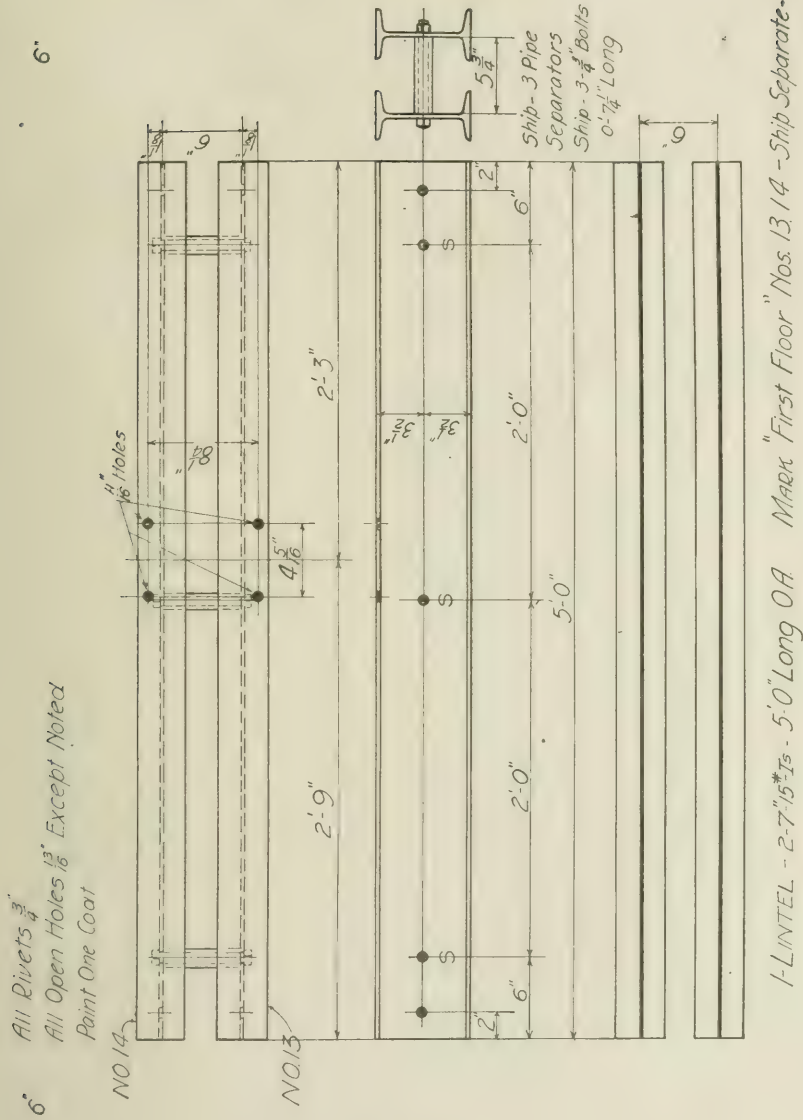 6"
6"
All Rivets 3/4"
All Open Holes 13/16" Except Noted
Paint One Coat
NO.14
NO.13
11/16" Holes
1 1/8"
6"
1 1/8"
8 1/4"
4 5/16"
2'-9"
2'-3"
3 1/2"
3 1/2"
S
S
S
2"
6"
2'-0"
2'-0"
6"
2"
5'-0"
5 3/4"
Ship-3 Pipe
Separators
Ship-3-3/4" Bolts
0'-7 1/4" Long
6"
1-LINTEL-2-7"-15#-Is-5'-0" Long OA. MARK "First Floor" Nos. 13,14-Ship Separate-